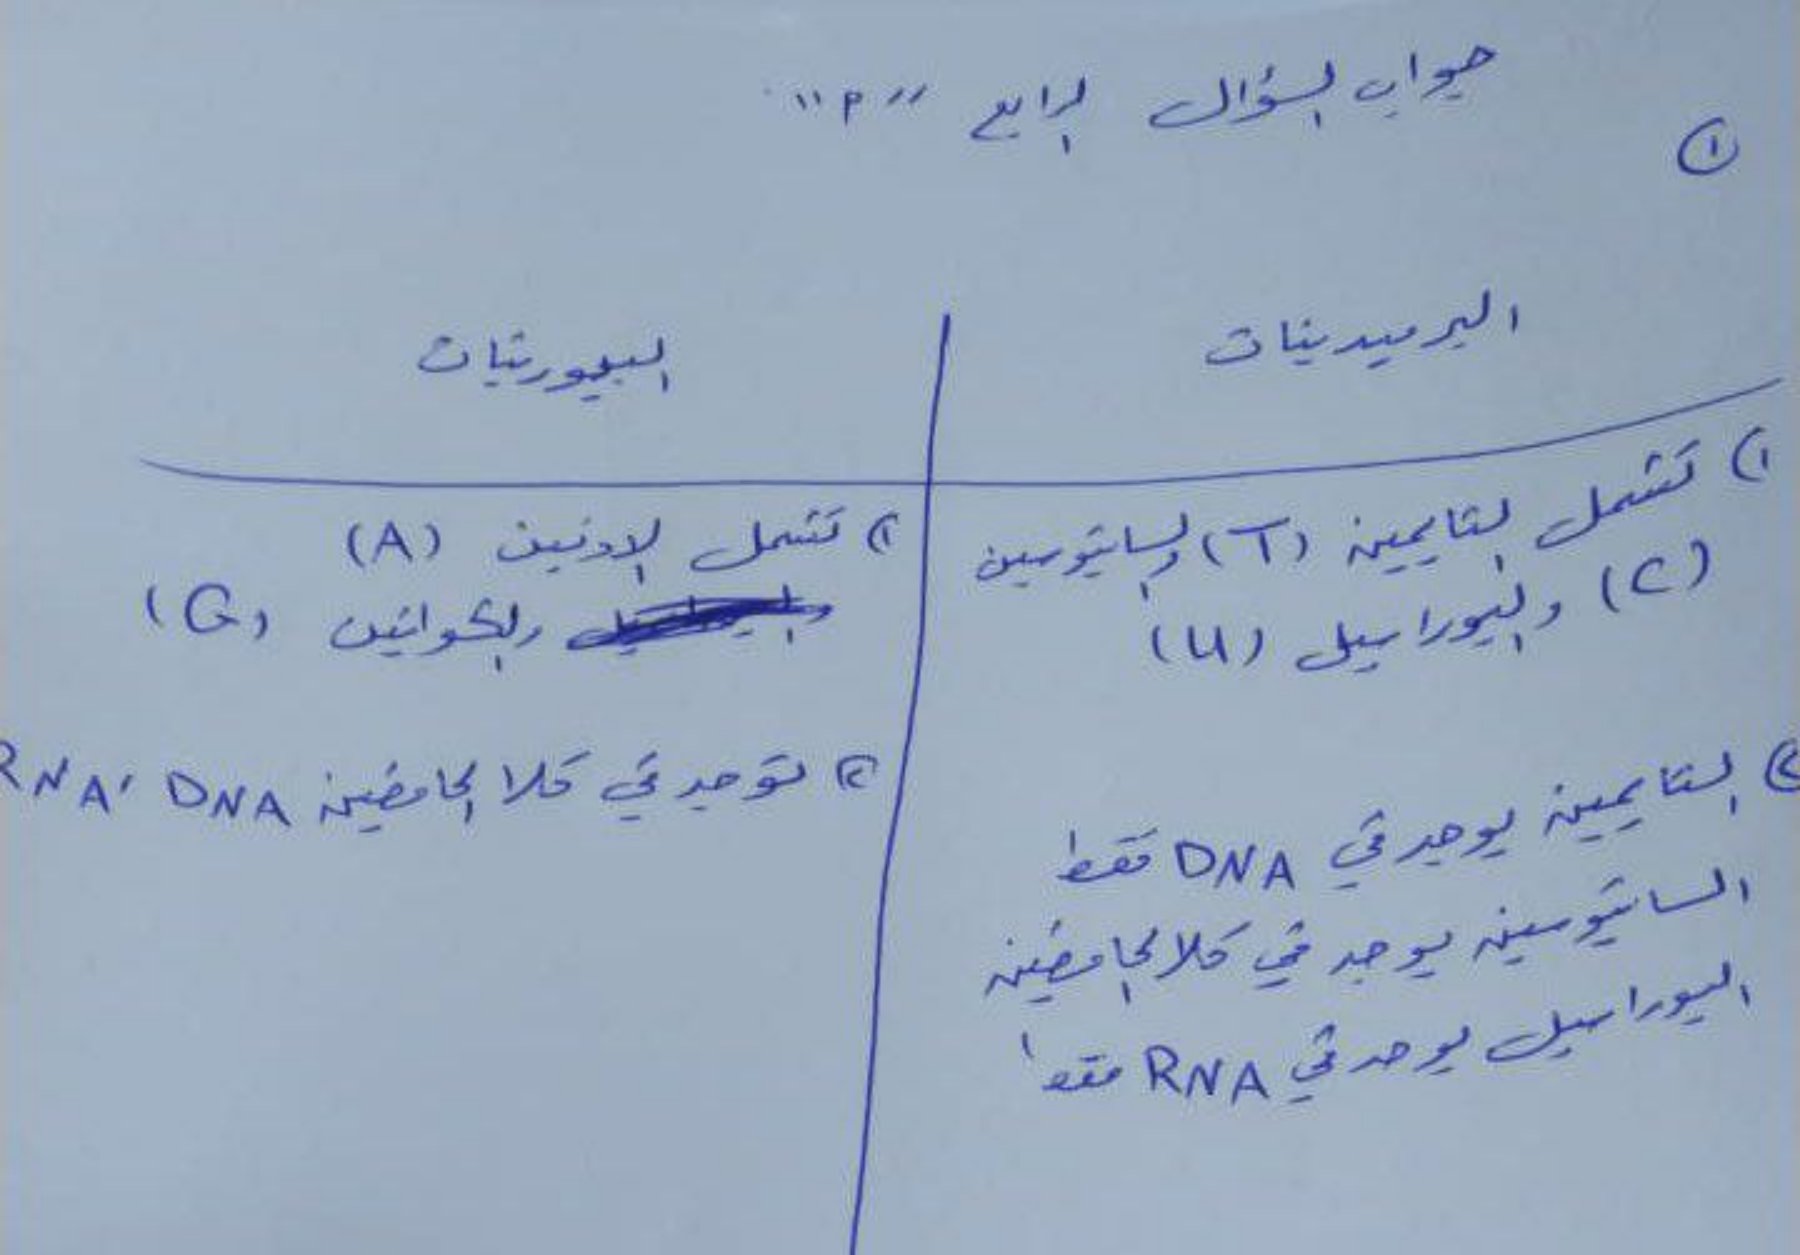 جواب السؤال الرابع "م"
①
البرميدينات
البيورينات
١) تشمل التايمين (T) والسايتوسين
(C) واليوراسيل (U)
٢) التايمين يوجد في DNA فقط
السايتوسين يوجد في كلا الحامضين
اليوراسيل يوجد في RNA فقط
١) تشمل الادنين (A)
والكوانين (G)
٢) توجد في كلا الحامضين RNA، DNA